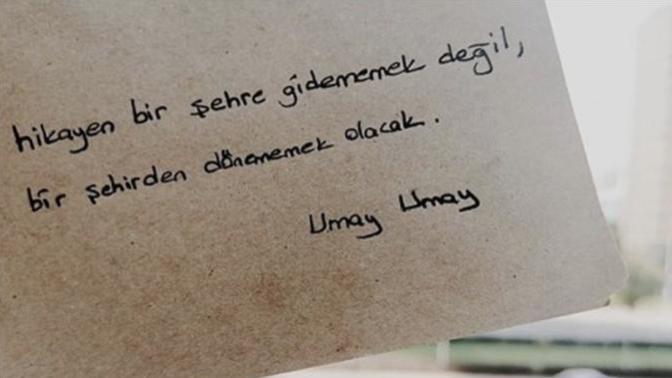 hikayen bir şehre gidememek değil,
bir şehirden dönememek olacak.
Umay Umay